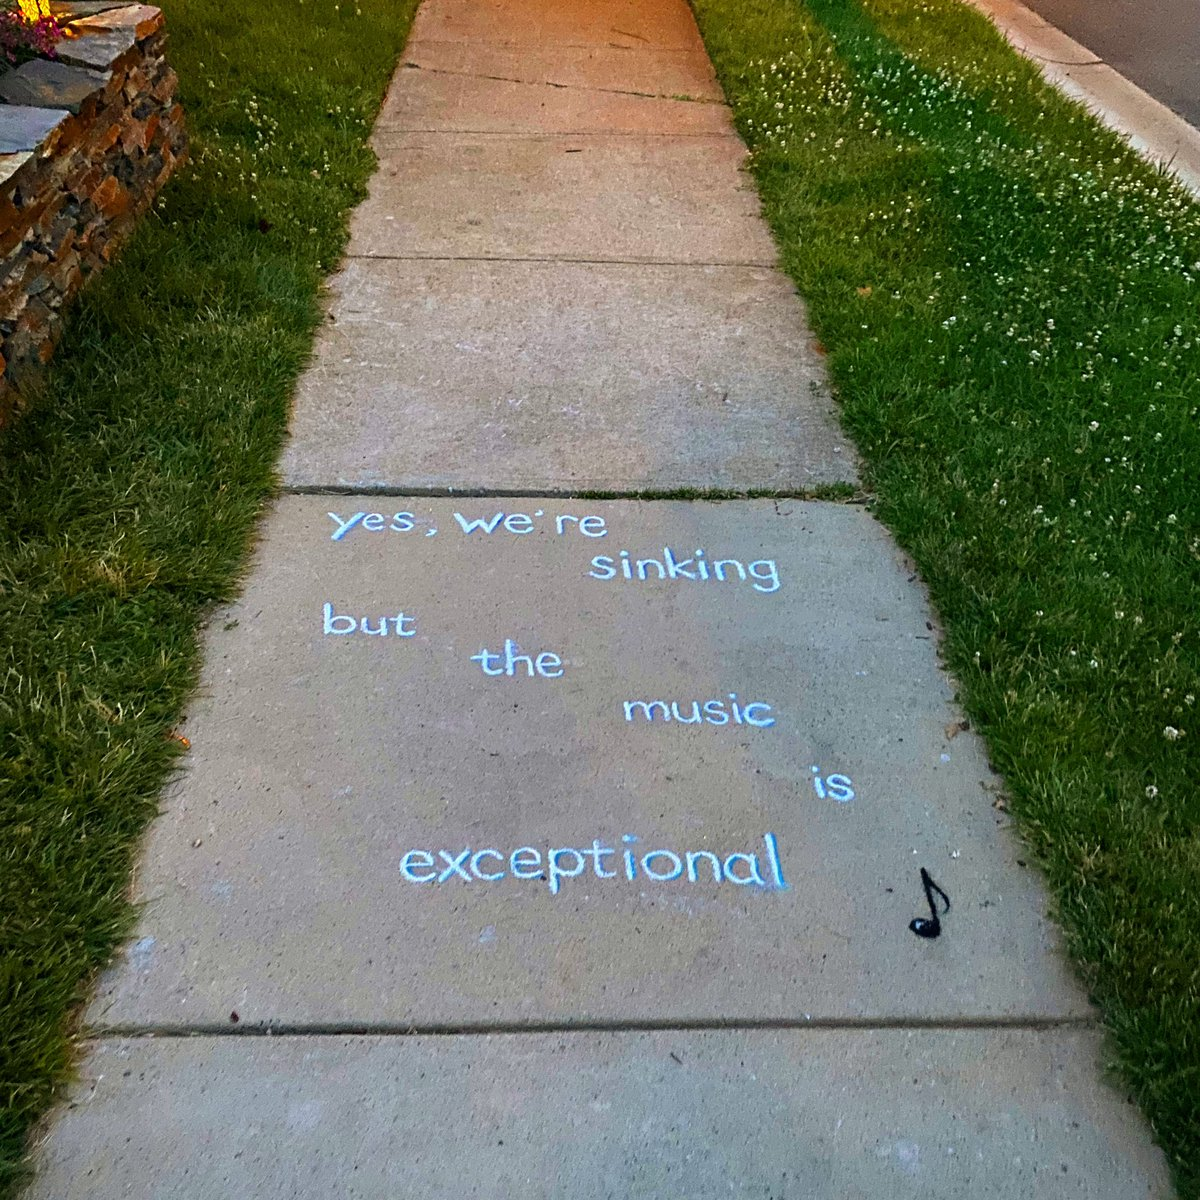 yes, we're
sinking
but
the
music
is
exceptional